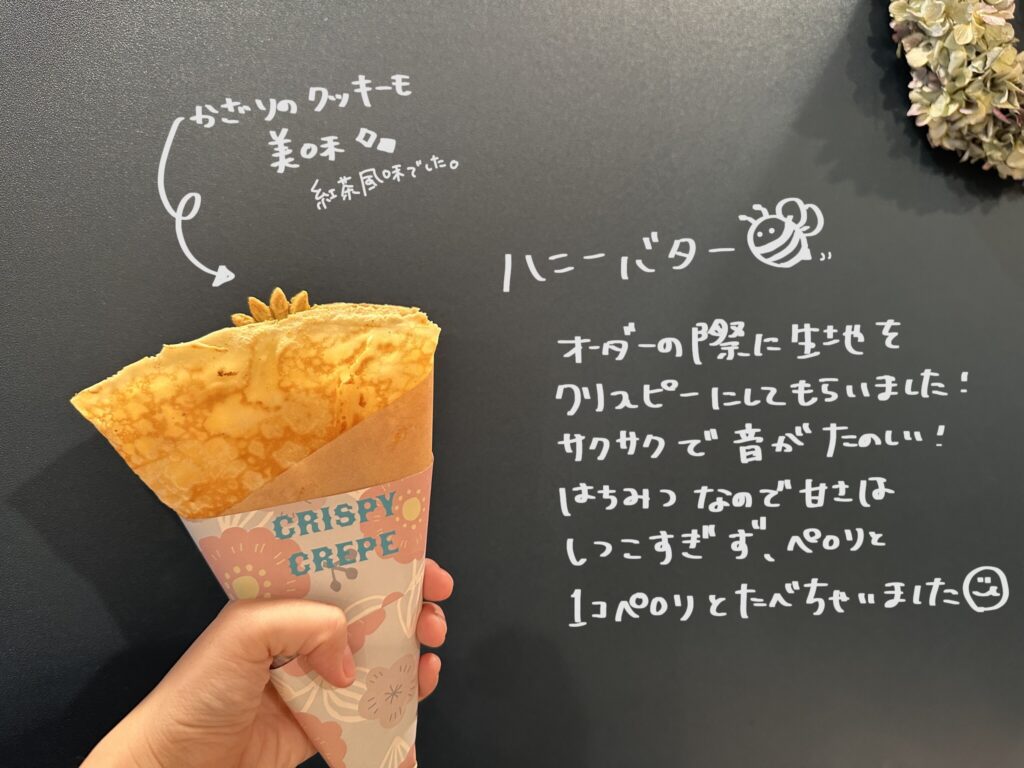 かざりのクッキーも
美味
紅茶風味でした。
ハニーバター
オーダーの際に生地を
クリスピーにしてもらいました！
サクサクで音がたのしい！
はちみつなので甘さは
しつこすぎず、ペロリと
1コペロリとたべちゃいました
CRISPY
CREPE